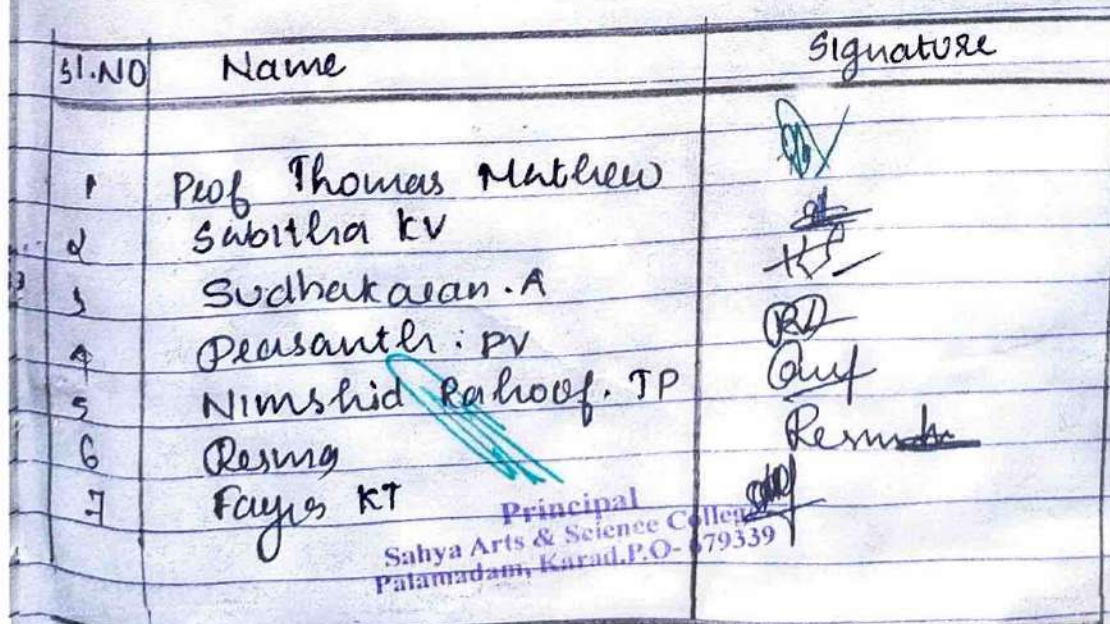 Sl.NO Name Signature
1 Prof Thomas Mathew
2 Sabitha KV
3 Sudhakaran.A
4 Prasanth: PV
5 Nimshid Rahoof. TP
6 Resma
7 Fayis KT
Principal
Sahya Arts & Science College
Palamadam, Karad.P.O- 679339